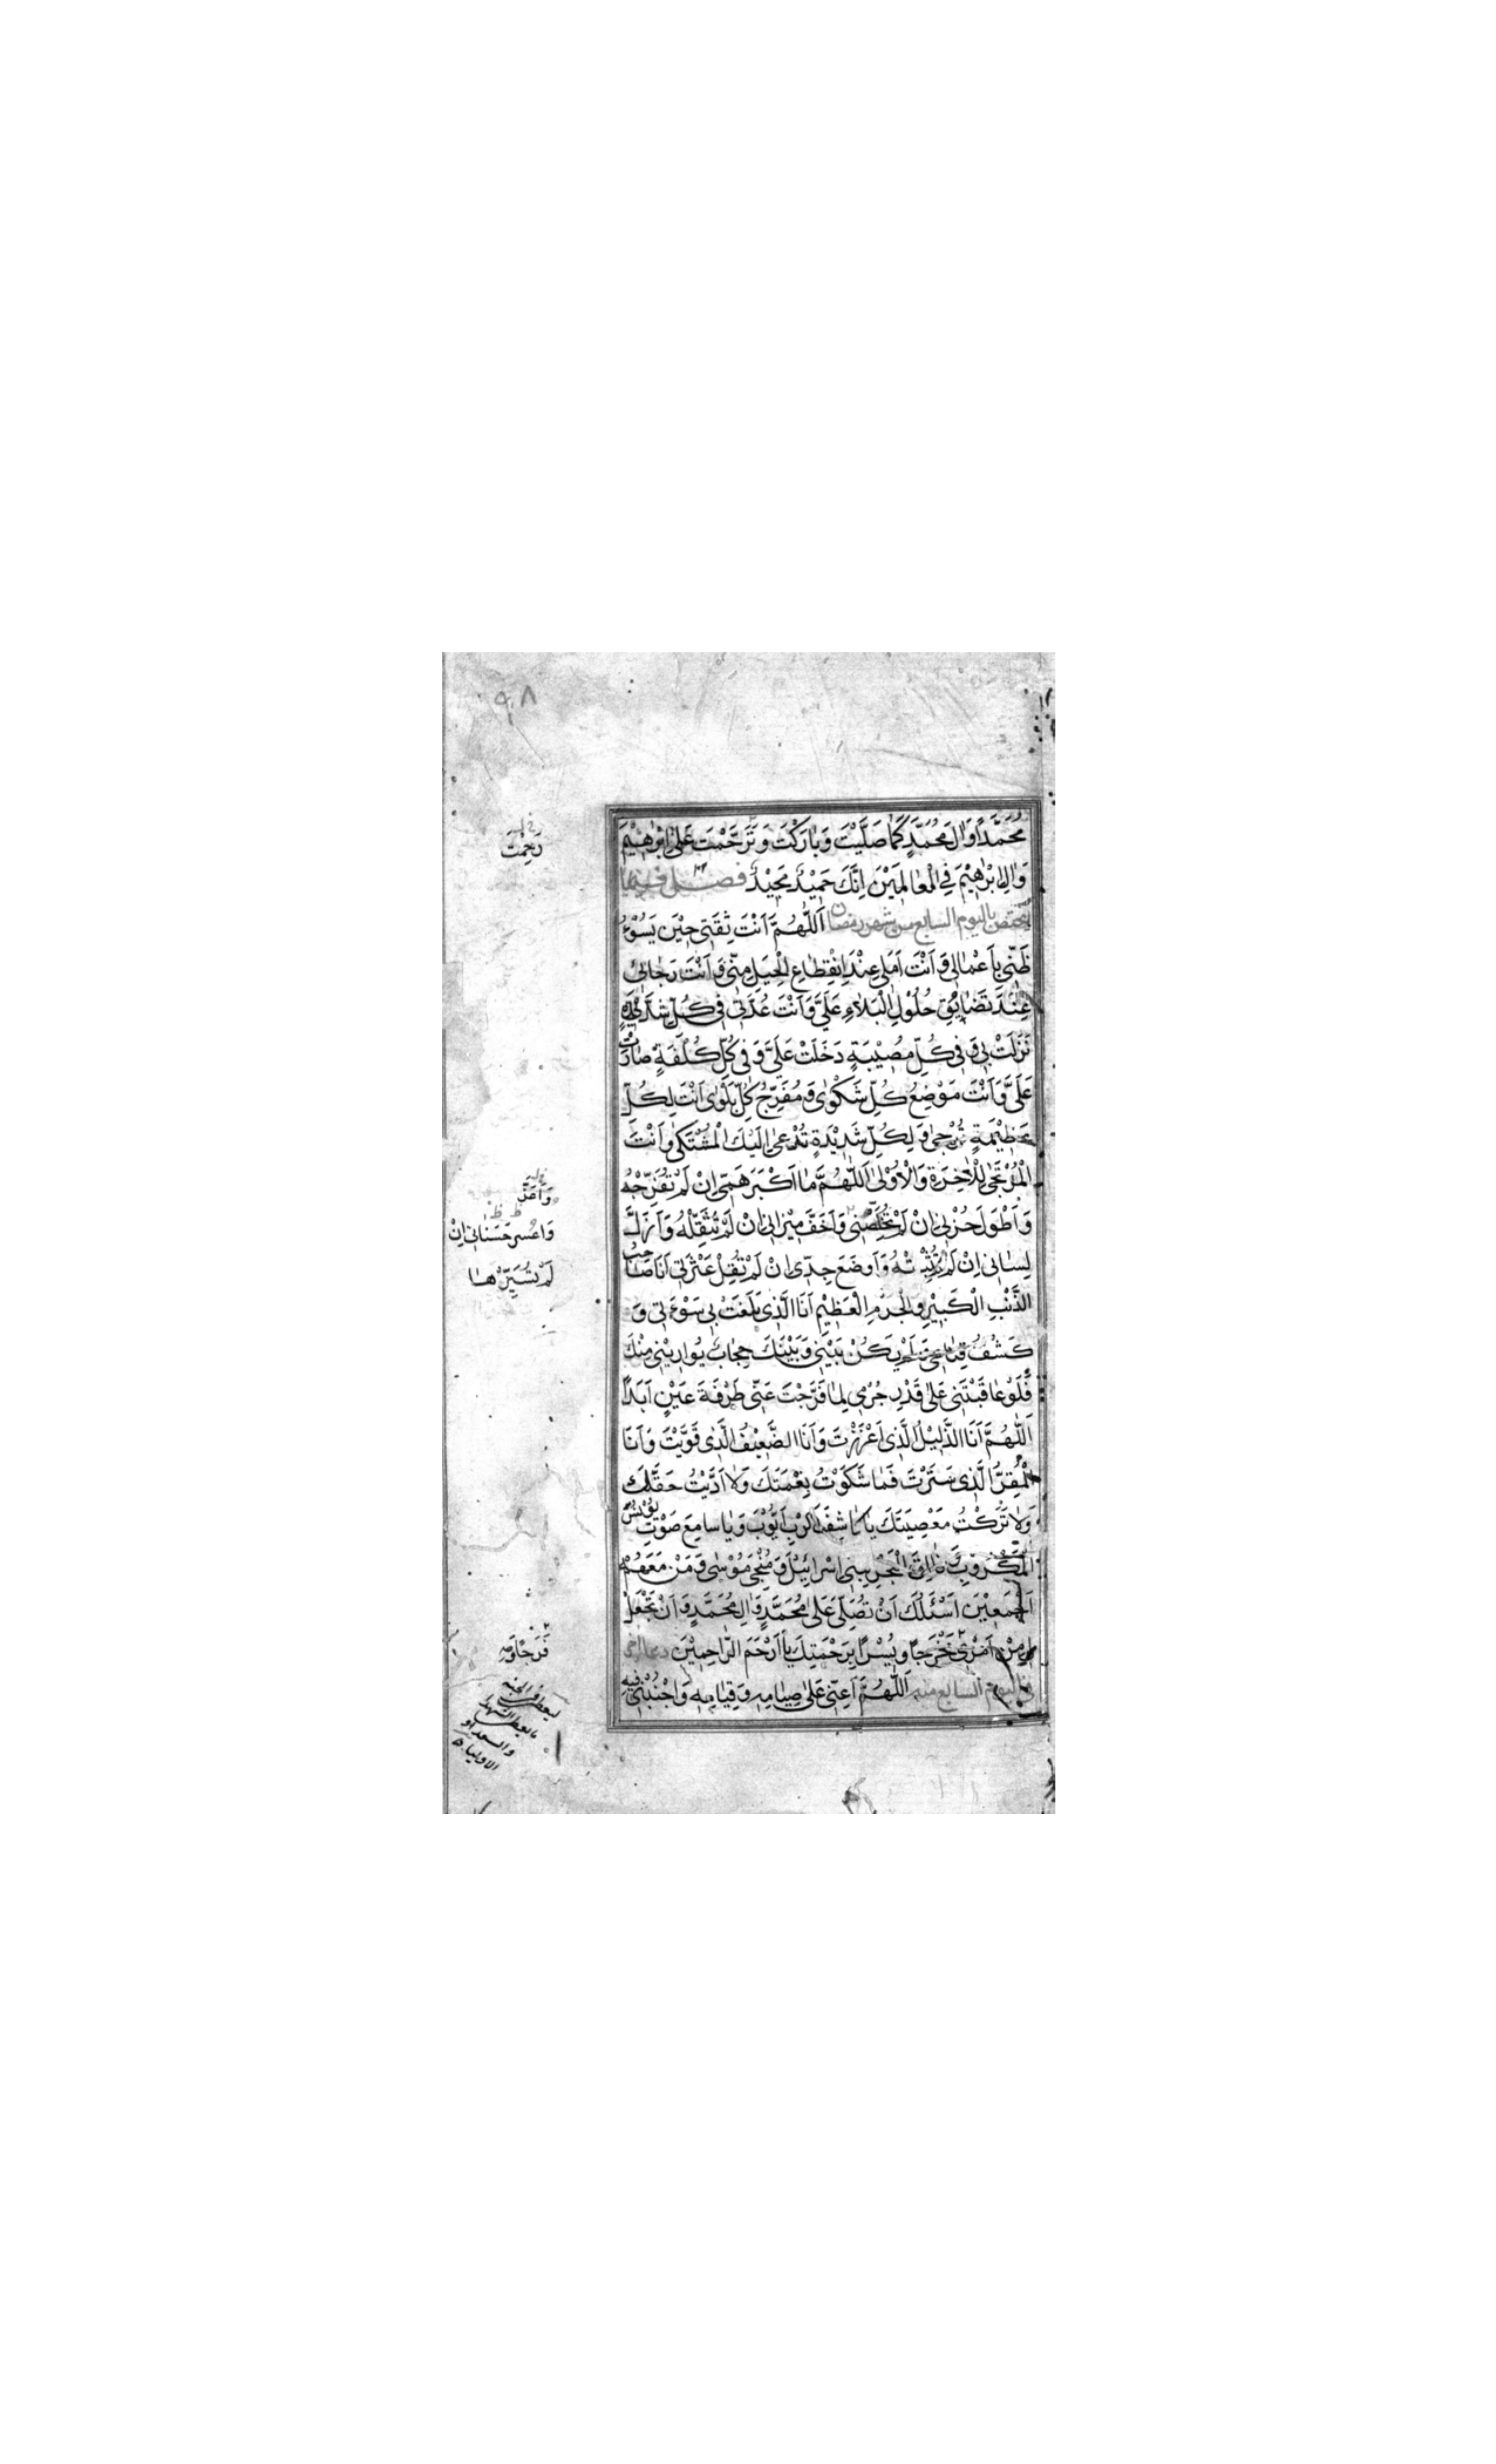 ۹۸
مُحَمَّدًا وَالَ مُحَمَّدٍ كَمٰا صَلَّيْتَ وَبٰارَكْتَ وَتَرَحَّمْتَ عَلىٰ اِبْرٰهيْمَ
وَالِ اِبْرٰهيْمَ فِي الْعٰالَمِيْنَ اِنَّكَ حَمِيْدٌ مَجِيْدٌ فصل فيما
يختص باليوم السابع من شهر رمضان اَللّٰهُمَّ اَنْتَ ثِقَتى حِيْنَ يَسُوْءُ
ظَنّى بِاَعْمٰالى وَاَنْتَ اَمَلى عِنْدَ اِنْقِطٰاعِ الْحِيَلِ مِنّى وَاَنْتَ رَجٰائى
عِنْدَ تَضٰايُقِ حُلُوْلِ الْبَلٰاءِ عَلَىَّ وَاَنْتَ عُدَّتى فى كُلِّ شِدَّةٍ
نَزَلَتْ بى وَفى كُلِّ مُصِيْبَةٍ دَخَلَتْ عَلَىَّ وَفى كُلِّ كُلْفَةٍ صٰارَتْ
عَلَىَّ وَاَنْتَ مَوْضِعُ كُلِّ شَكْوٰى وَمُفَرِّجُ كُلِّ بَلْوٰى اَنْتَ لِكُلِّ
عَظِيْمَةٍ تُرْجىٰ وَلِكُلِّ شَدِيْدَةٍ تُدْعىٰ اِلَيْكَ الْمُشْتَكىٰ وَاَنْتَ
الْمُرْتَجىٰ لِلْاٰخِرَةِ وَالْاُوْلىٰ اَللّٰهُمَّ مٰا اَكْبَرَ هَمّى اِنْ لَمْ تُفَرِّجْهُ
وَاَطْوَلَ حُزْنى اِنْ لَمْ تُخَلِّصْنى وَاَخَفَّ مِيْزٰانى اِنْ لَمْ تُثَقِّلْهُ وَاَزَلَّ
لِسٰانى اِنْ لَمْ تُثَبِّتْهُ وَاَوضَعَ جِدّى اِنْ لَمْ تُقِلْ عَثْرَتى اَنَا صٰاحِبُ
الذَّنْبِ الْكَبِيْرِ وَالْجُرْمِ الْعَظِيْمِ اَنَا الَّذى بَلَغَتْ بى سَوْءَتى وَ
كَشْفُ قِنٰاعى وَلَمْ يَكُنْ بَيْنى وَبَيْنَكَ حِجٰابٌ يُوٰارِيْنى مِنْكَ
فَلَوْ عٰاقَبْتَنى عَلىٰ قَدْرِ جُرْمى لِمٰا فَرَّجْتَ عَنّى طَرْفَةَ عَيْنٍ اَبَدًا
اَللّٰهُمَّ اَنَا الذَّلِيْلُ الَّذى اَعْزَزْتَ وَاَنَا الضَّعِيْفُ الَّذى قَوَّيْتَ وَاَنَا
الْمُقِرُّ الَّذى سَتَرْتَ فَمٰا شَكَرْتُ نِعْمَتَكَ وَلٰا اَدَّيْتُ حَقَّكَ
وَلٰا تَرَكْتُ مَعْصِيَتَكَ يٰا كٰاشِفَ كَرْبِ اَيُّوْبَ وَيٰا سٰامِعَ صَوْتِ يُوْنُسَ
الْمَكْرُوبِ وَفٰالِقَ الْبَحْرِ لِبَنى اِسْرٰائيْلَ وَمُنْجِىَ مُوْسٰى وَمَنْ مَعَهُ
اَجْمَعِيْنَ اَسْئَلُكَ اَنْ تُصَلِّىَ عَلىٰ مُحَمَّدٍ وَالِ مُحَمَّدٍ وَاَنْ تَجْعَلَ
لى مِنْ اَمْرى مَخْرَجًا وَيُسْرًا بِرَحْمَتِكَ يٰا اَرْحَمَ الرّٰاحِمِيْنَ دعاء اخر
فى اليوم السابع منه اَللّٰهُمَّ اَعِنّى عَلىٰ صِيٰامِهِ وَقِيٰامِهِ وَاجْنُبْنى فِيْهِ
رَحِمْتَ
وَاعسر حَسَنٰاتى اِنْ
لَمْ تُيَسِّرْهٰا
فَرَجًا وَ